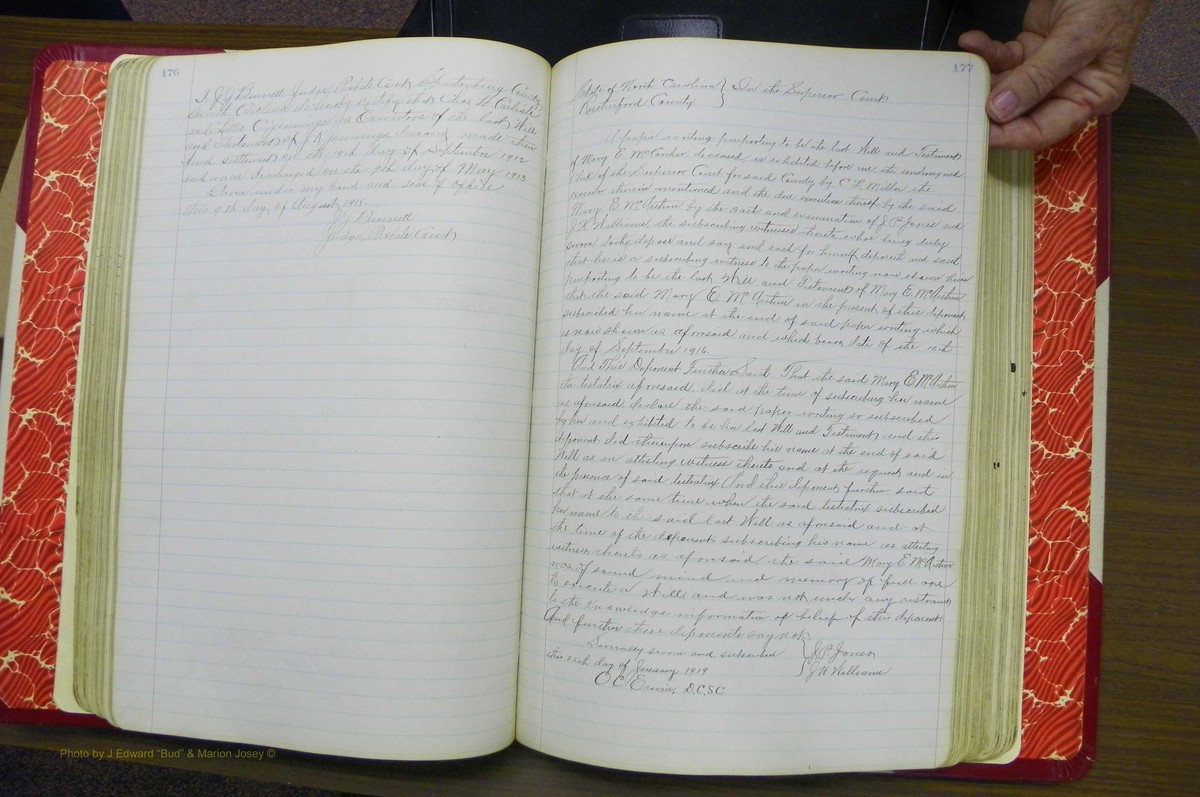 176
I J J Bennett Judge Probate Court Spartanburg County
South Carolina do hereby certify that Chas H Carlisle
and C Jennings as Executors of the last Will
and Testament of J Jennings deceased made their
final settlement on the 19th day of September 1912
and were discharged on the 9th day of May 1913.
Given under my hand and seal of office
this 9th day of August 1918.
J J Bennett
Judge Probate Court
177
State of North Carolina } In the Superior Court
Rutherford County
A paper writing purporting to be the last Will and Testament
of Mary E. McArthur deceased, is exhibited before me, the undersigned
Clerk of the Superior Court for said County by C. L. Miller the
executor therein mentioned and the due execution thereof by the said
Mary E. McArthur by the oath and examination of J P Jones and
J. H. Williams the subscribing witnesses thereto, who being duly
sworn doth depose and say and each for himself deposeth and saith
that he is a subscribing witness to the paper writing now shown him
purporting to be the last Will and Testament of Mary E. McArthur
that the said Mary E McArthur in the presence of this deponent,
subscribed her name at the end of said paper writing which
is now shown as aforesaid and which bears date of the 10th
day of September 1916.
And This Deponent Further Saith, That the said Mary E McArthur
the testatrix aforesaid, did at the time of subscribing her name
as aforesaid declare the said paper writing so subscribed
by her and exhibited to be her last Will and Testament, and this
deponent did thereupon subscribe his name at the end of said
Will as an attesting witness thereto, and at the request and in
the presence of said testatrix. And this deponent further saith
that at the same time when the said testatrix subscribed
her name to the said last Will as aforesaid and at
the time of the deponents subscribing his name as attesting
witness thereto as aforesaid the said Mary E McArthur
was of sound mind and memory of full age
to execute a Will and was not under any restraint
to the knowledge information or belief of this deponent.
And further these deponents say not.
Severally sworn and subscribed } J. P. Jones
this day of January 1919 } J H Williams
O C Erwin, D.C.S.C.
Photo by J Edward "Bud" & Marion Josey ©